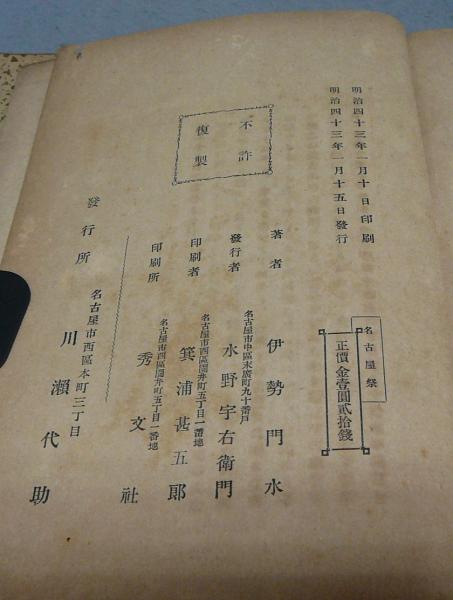 明治四十三年一月十日印刷
明治四十三年一月十五日發行
名古屋祭
正價金壹圓貳拾錢
不許
復製
著者　伊勢門水
名古屋市中區末廣町九十番戸
發行者　水野宇右衛門
名古屋市西區園井町五丁目一番地
印刷者　箕浦甚五郎
名古屋市西區園井町五丁目一番地
印刷所　秀文社
名古屋市西區本町三丁目
發行所　川瀨代助